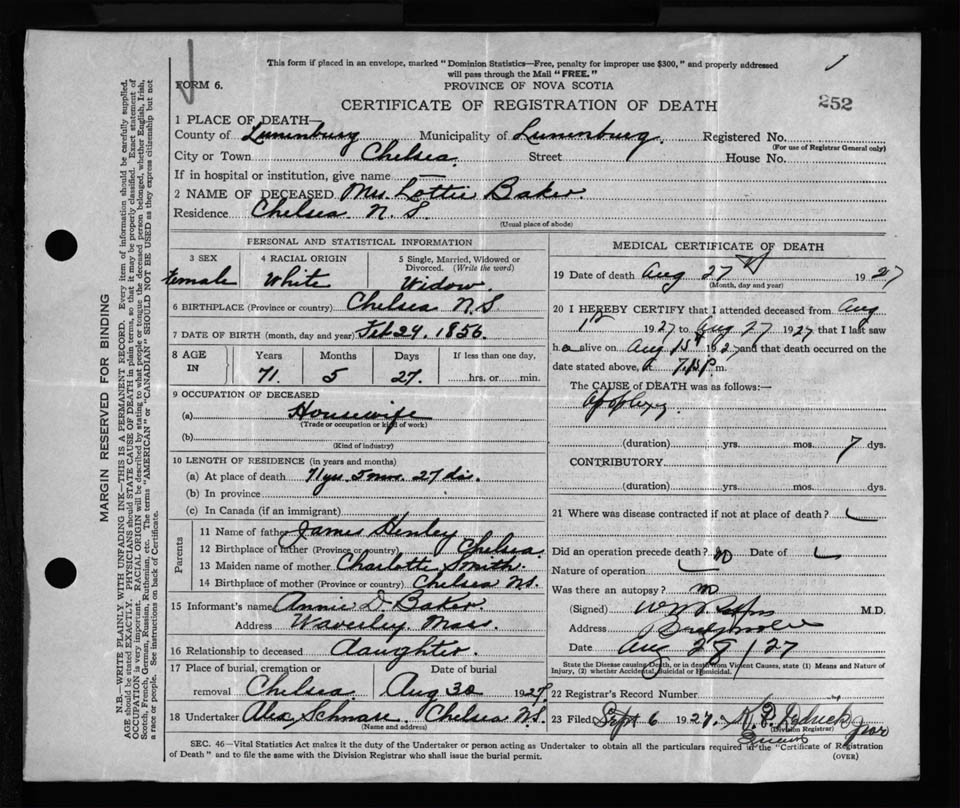 This form if placed in an envelope, marked "Dominion Statistics—Free, penalty for improper use $300," and properly addressed
will pass through the Mail "FREE."
FORM 6.
PROVINCE OF NOVA SCOTIA
CERTIFICATE OF REGISTRATION OF DEATH
252
1 PLACE OF DEATH—
County of Lunenburg Municipality of Lunenburg Registered No.
(For use of Registrar General only)
City or Town Chelsea Street House No.
If in hospital or institution, give name —
2 NAME OF DECEASED Mrs. Lottie Baker.
Residence Chelsea N.S.
(Usual place of abode)
PERSONAL AND STATISTICAL INFORMATION
3 SEX 4 RACIAL ORIGIN 5 Single, Married, Widowed or Divorced. (Write the word)
Female White Widow.
6 BIRTHPLACE (Province or country) Chelsea N.S
7 DATE OF BIRTH (month, day and year) Feb 29. 1856.
8 AGE IN Years Months Days If less than one day,
71. 5 27. hrs. or min.
9 OCCUPATION OF DECEASED
(a) Housewife
(Trade or occupation or kind of work)
(b)
(Kind of industry)
10 LENGTH OF RESIDENCE (in years and months)
(a) At place of death 71 yrs 5 mos. 27 ds.
(b) In province
(c) In Canada (if an immigrant)
Parents
11 Name of father James Henley
12 Birthplace of father (Province or country) Chelsea
13 Maiden name of mother Charlotte Smith.
14 Birthplace of mother (Province or country) Chelsea N.S.
15 Informant's name Annie D. Baker.
Address Waverley Mass.
16 Relationship to deceased daughter.
17 Place of burial, cremation or removal Date of burial
Chelsea Aug 30 1927
18 Undertaker Alex Schnare Chelsea N.S.
(Name and address)
MEDICAL CERTIFICATE OF DEATH
19 Date of death Aug 27 1927
(Month, day and year)
20 I HEREBY CERTIFY that I attended deceased from Aug
1927 to Aug 27 1927 that I last saw
h alive on Aug 1927 and that death occurred on
date stated above, at m.
The CAUSE of DEATH was as follows:—
Apoplexy.
(duration) yrs. mos. 7 dys.
CONTRIBUTORY
(duration) yrs. mos. dys.
21 Where was disease contracted if not at place of death?
Did an operation precede death? no Date of
Nature of operation
Was there an autopsy? no
(Signed) M.D.
Address
Date Aug 29/27
State the Disease causing Death, or in death from Violent Causes, state (1) Means and Nature of
Injury, (2) whether Accidental, Suicidal or Homicidal.
22 Registrar's Record Number
23 Filed Sept 6 1927.
(Division Registrar)
SEC. 46—Vital Statistics Act makes it the duty of the Undertaker or person acting as Undertaker to obtain all the particulars required in the "Certificate of Registration
of Death" and to file the same with the Division Registrar who shall issue the burial permit.
(OVER)
MARGIN RESERVED FOR BINDING
N.B.—WRITE PLAINLY, WITH UNFADING INK—THIS IS A PERMANENT RECORD. Every item of information should be carefully supplied.
AGE should be stated EXACTLY. PHYSICIANS should STATE CAUSE OF DEATH in plain terms, so that it may be properly classified. Exact statement of
OCCUPATION is very important. RACIAL ORIGIN will be described by stating to what people or tongue the deceased person belonged, whether English, Irish,
Scotch, French, German, Russian, Ruthenian, etc. The terms "AMERICAN" or "CANADIAN" SHOULD NOT BE USED as they express citizenship but not
a race or people. See instructions on back of Certificate.